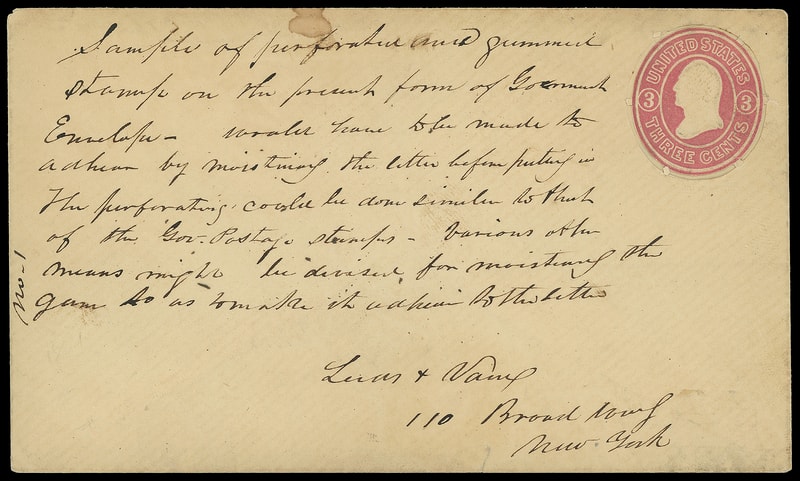 Sample of perforated and gummed
Stamp on the present form of Goverment
Envelope - would have to be made to
adhear by moistining the letter before puting in
The perforating could be done similar to that
of the Gov. Postage stamps - Various other
means might be devised for moistining the
gum so as to make it adhear to the letter
No-1
&
110 Broadway
New York
UNITED STATES
3 3
THREE CENTS